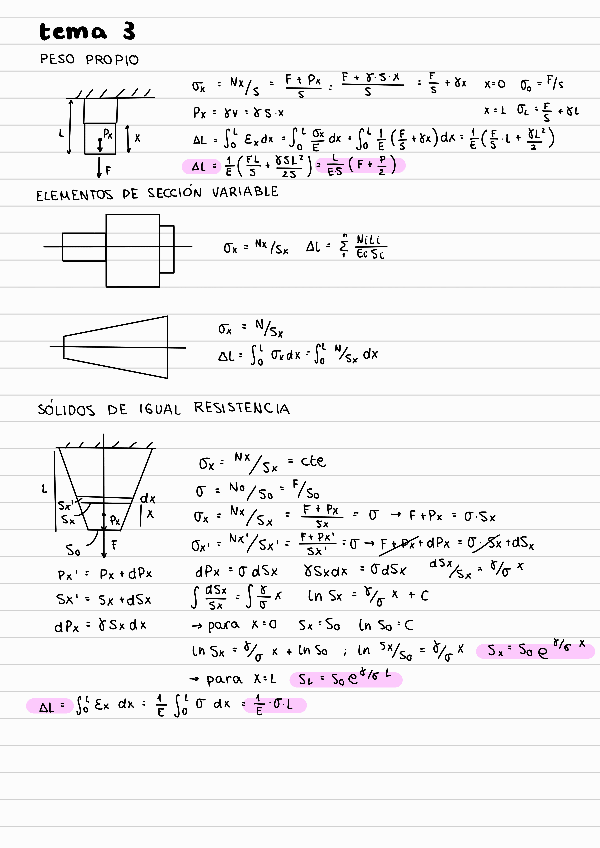 tema 3
PESO PROPIO
σx = Nx/S = F + Px / S = F + γ·S·X / S = F/S + γx   x=0   σo = F/S
Px = γV = γS·x   x=L   σL = F/S + γL
L   Px   x
ΔL = ∫₀ᴸ Ɛx dx = ∫₀ᴸ σx/E dx = ∫₀ᴸ 1/E (F/S + γx) dx = 1/E (F/S · L + γL²/2)
F
ΔL = 1/E (FL/S + γSL²/2S) = L/ES (F + P/2)
ELEMENTOS DE SECCIÓN VARIABLE
σx = Nx/Sx   ΔL = Σ NiLi / EiSi
σx = N/Sx
ΔL = ∫₀ᴸ σx dx = ∫₀ᴸ N/Sx dx
SÓLIDOS DE IGUAL RESISTENCIA
σx = Nx/Sx = cte
L   Sx'   Sx   dx   x   Px   So   F
σ = No/So = F/So
σx = Nx/Sx = F + Px / Sx = σ → F+Px = σ·Sx
σx' = Nx'/Sx' = F+Px' / Sx' = σ → F+Px+dPx = σ·Sx+dSx
Px' = Px + dPx   dPx = σ dSx   γSxdx = σdSx   dSx/Sx = γ/σ x
Sx' = Sx + dSx   ∫ dSx/Sx = ∫ γ/σ x   ln Sx = γ/σ x + C
dPx = γSxdx   → para x=0   Sx = So   ln So = C
ln Sx = γ/σ x + ln So ; ln Sx/So = γ/σ x   Sx = So e^γ/σ x
→ para x=L   SL = So e^γ/σ L
ΔL = ∫₀ᴸ Ɛx dx = 1/E ∫₀ᴸ σ dx = 1/E · σ · L